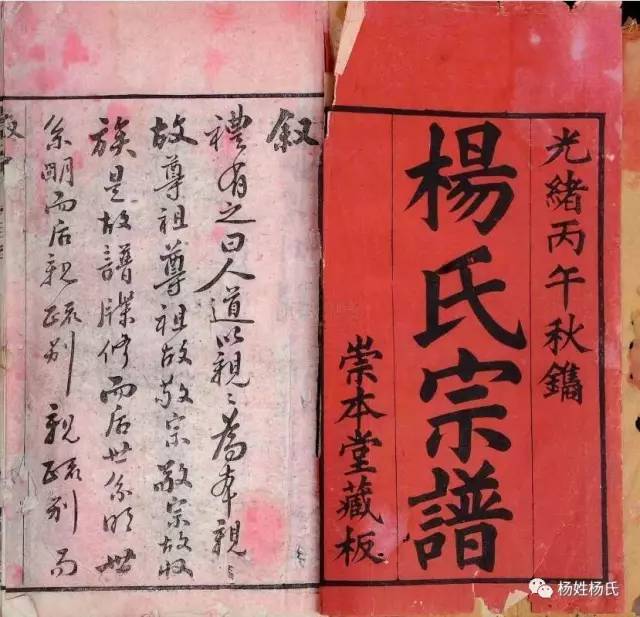 光緒丙午秋鐫
楊氏宗譜
崇本堂藏板
叙
禮有之曰人道以親〻為本親〻
故尊祖尊祖故敬宗敬宗故收
族是故譜牒修而后世系明世
系明而后親疏别親疏别而
杨姓杨氏